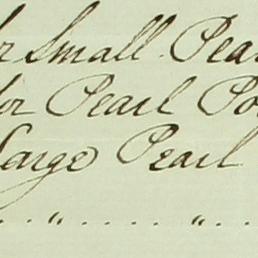 r Small Pea
for Pearl Po
Large Pearl
" "